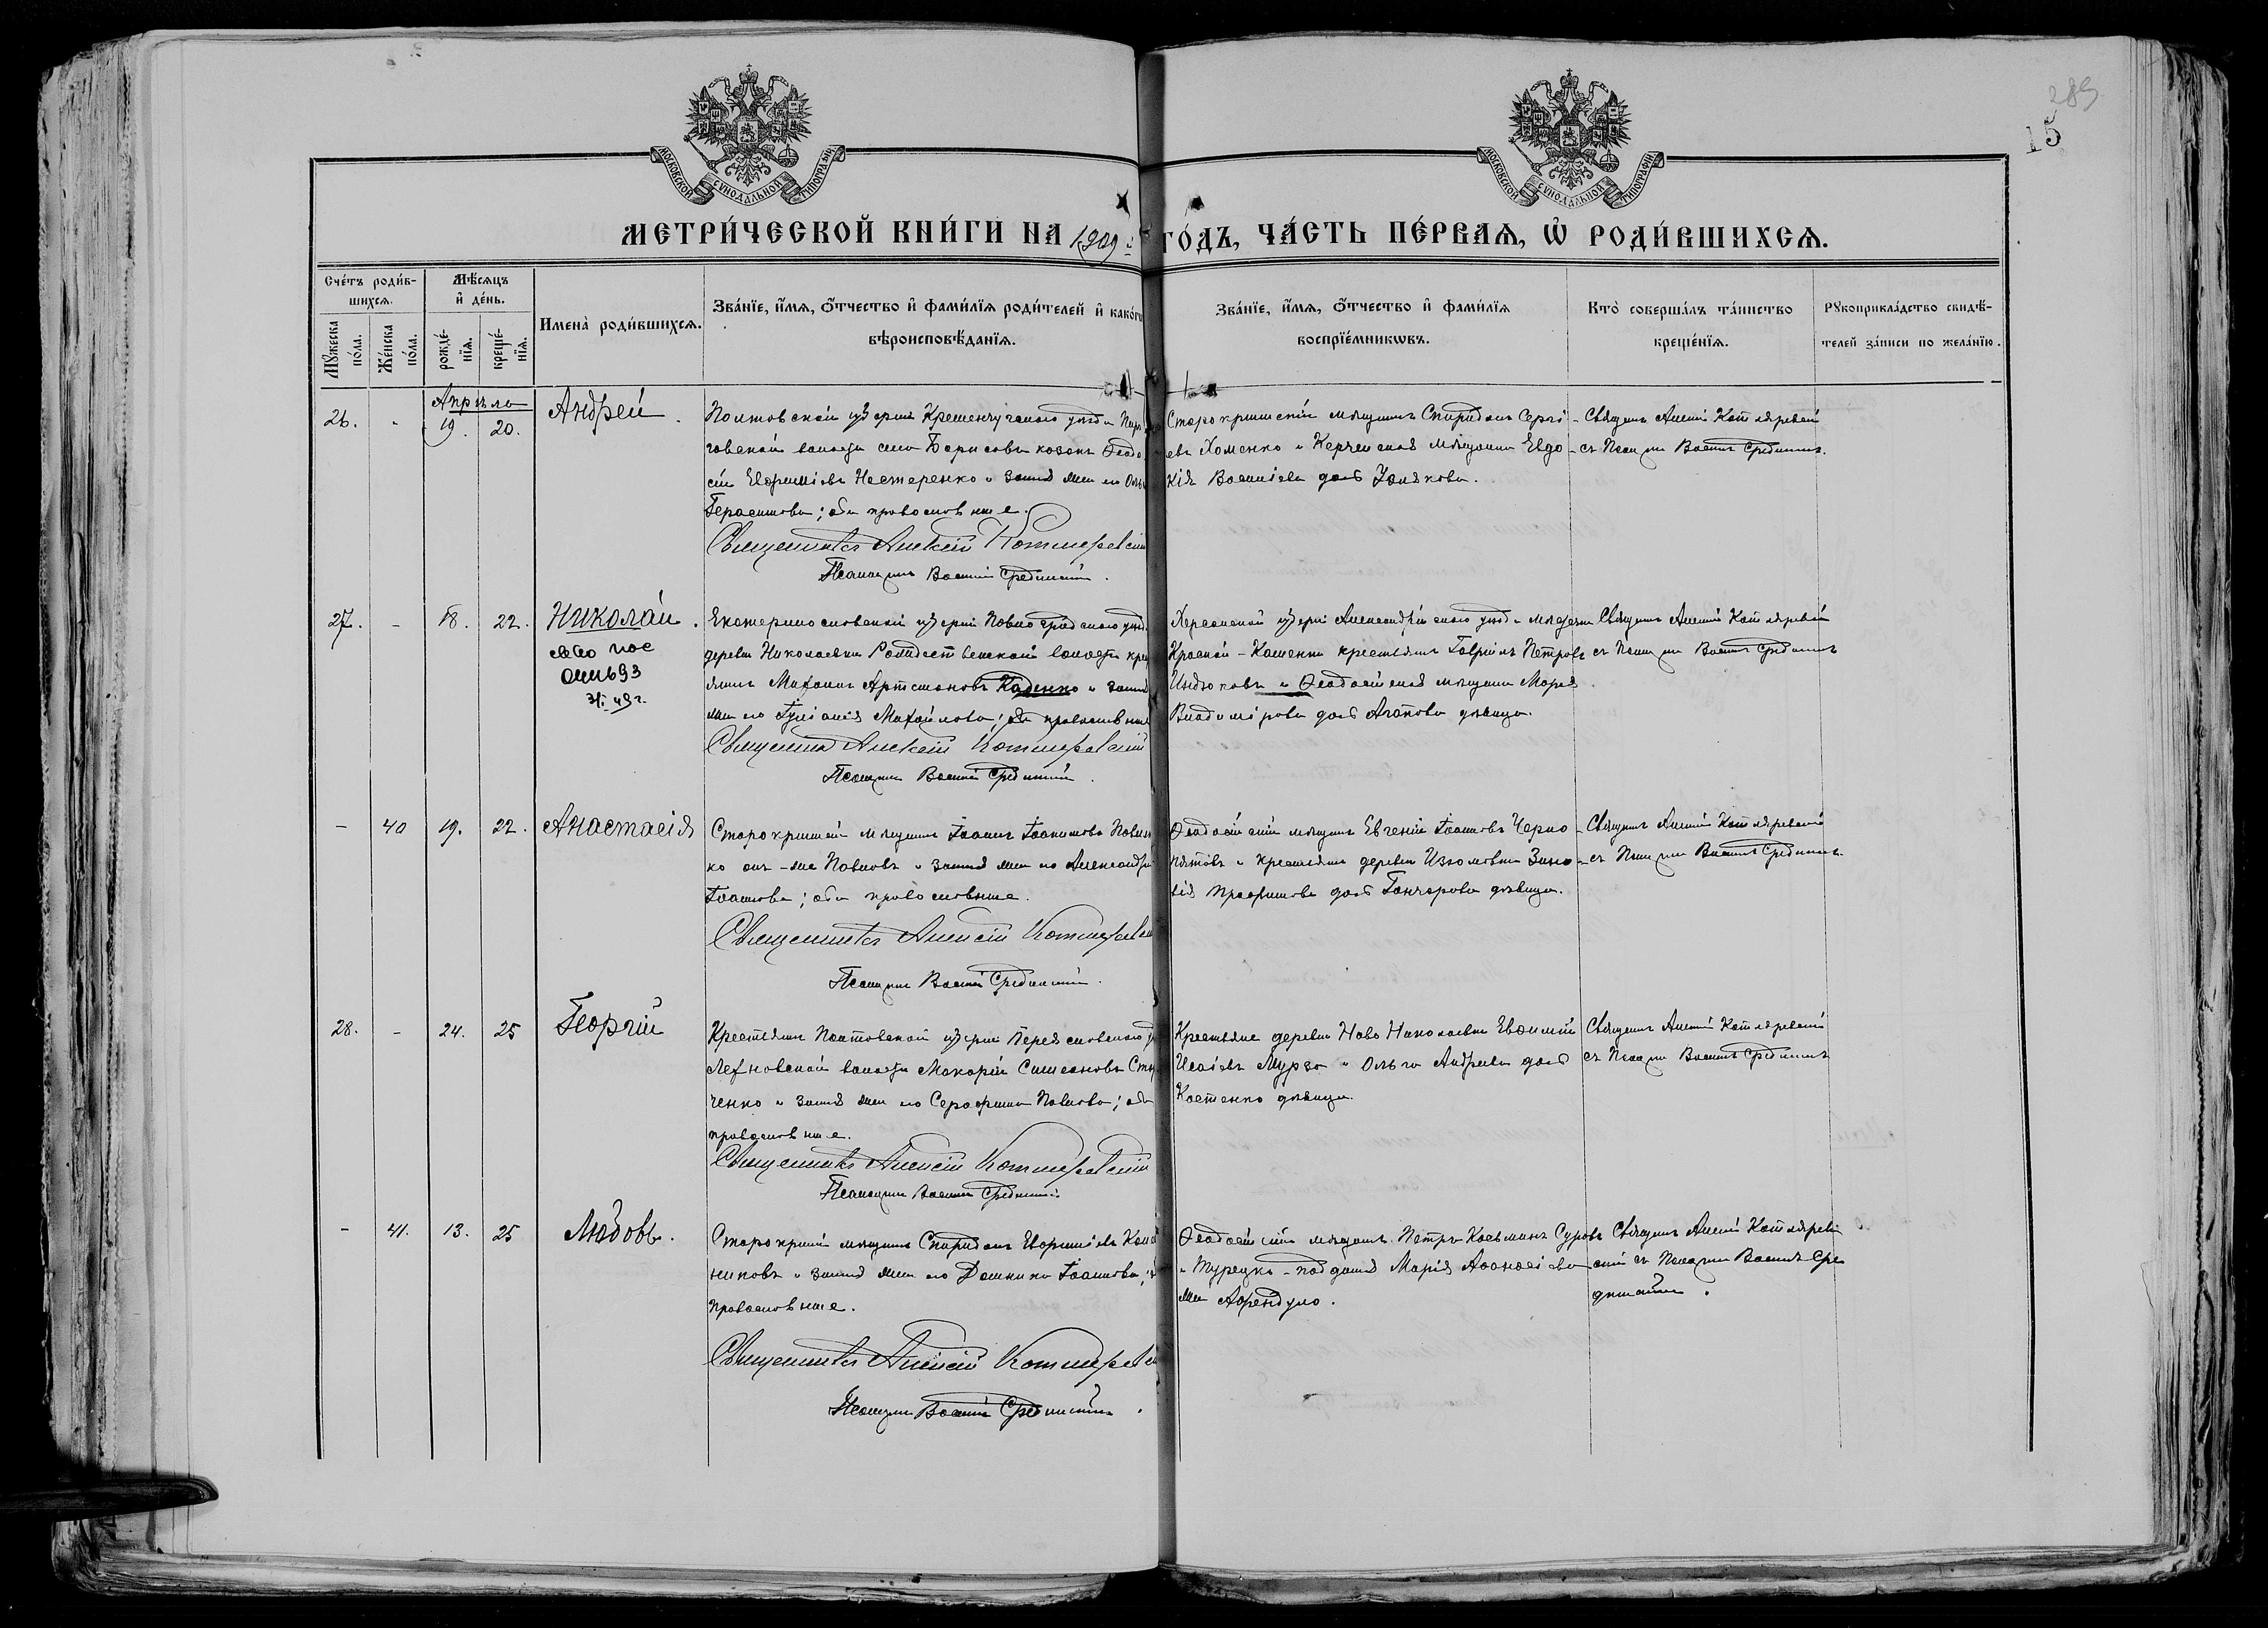 289
15
МОСКОВСКОЙ СѴНОДАЛЬНОЙ ТИПОГРАФІИ
МОСКОВСКОЙ СѴНОДАЛЬНОЙ ТИПОГРАФІИ
МЕТРИ́ЧЕСКОЙ КНИ́ГИ НА 1909 ГО́ДЪ, ЧА́СТЬ ПЕ́РВАѦ, Ѡ РОДИ́ВШИХСѦ.
Сче́тъ роди́в-
шихсѧ.
Мѣ́сѧцъ
и҆ де́нь.
Мꙋ́жеска по́ла.
Же́нска по́ла.
рожде́-
нїѧ.
креще́-
нїѧ.
Имена̀ роди́вшихсѧ.
Зва́нїе, и҆́мѧ, ѻ҆́тчество и҆ фами́лїѧ роди́телей и҆ како́гѡ
вѣроисповѣ́данїѧ.
Зва́нїе, и҆́мѧ, ѻ҆́тчество и҆ фами́лїѧ
воспрїе́мникѡвъ.
Кто̀ соверша́лъ та́инство
креще́нїѧ.
Рꙋкоприкла́дство свидѣ́-
телей за́писи по жела́нїю.
Апрѣля
26. - 19. 20. Андрей.
Полтовской губерніи Кременчугскаго уѣзда
говской волости села Борисовъ козакъ Ѳеодо
сій Евфиміевъ Нестеренко и закон жена его Ольга
Герасимова; оба православные.
Священникъ Алексій Котляревскій
Псаломщ Василій Срединскій.
Старокрымскій мѣщанинъ Спиридонъ Сергі-
евъ Хоменко и Керченская мѣщанка Евдо-
кія Васильева дочь
Священ Алексій Котляревскій
съ Псаломщ Василіемъ Срединск.
27. - 18. 22. Николай.
св-во пос
31/I 49 г.
Екатеринославской губерніи Павлоградскаго уѣзда
деревни Николаевки Рождественской волости крес
янинъ Михаилъ Артамоновъ Каденко и закон
жена его Іуліанія Михайлова; оба православные
Священник Алексій Котляревскій
Псаломщ Василій Срединскій.
Херсонской губерніи Александрійскаго уѣзда
Красной-Каменки крестьянинъ Гавріилъ Петровъ
Индюковъ и Ѳеодосійская мѣщанка Марія
Владимірова дочь Агапова дѣвица.
Священ Алексій Котляревскій
съ Псаломщ Василіемъ Срединск
- 40 19. 22. Анастасія
Старокрымскій мѣщанинъ Іоаннъ Іоакимовъ Павлен
ко онъ-же Павловъ и закон жена его Александра
Іоаннова; оба православные.
Священникъ Алексій Котляревск
Псаломщ Василій Срединскій.
Ѳеодосійскій мѣщан Евгеній Іоанновъ Черно-
пятовъ и крестьянка деревни Изюмовки Зино-
вія Трофимова дочь Гончарова дѣвица.
Священ Алексій Котляревскій
съ Псаломщ Василіемъ Срединск.
28. - 24. 25 Георгій
Крестьянинъ Полтовской губерніи Переяславскаго у
волости Макарій Симеоновъ
ченко и закон жена его Серафима Павлова; оба
православные.
Священникъ Алексій Котляревскій
Псаломщ Василій Срединскій
Крестьяне деревни Ново Николаевки Евѳимій
Исаіевъ Мурза и Ольга Андреева дочь
Костенко дѣвица.
Священ Алексій Котляревскій
съ Псаломщ Василіемъ Срединск
- 41. 13. 25 Любовь.
Старокрымскій мѣщанинъ Спиридонъ Евфиміевъ
никовъ и закон жена его Домника Іоаннова;
православные.
Священникъ Алексій Котляревск
Псаломщ Василій Срединскій.
Ѳеодосійскій мѣщанинъ Петръ Косьминъ Суровъ
и Турецко-подданная Марія Аѳанасіева
Афендуло.
Священ Алексій Котлярев
скій съ Псаломщ Василіемъ Сре
динскимъ.